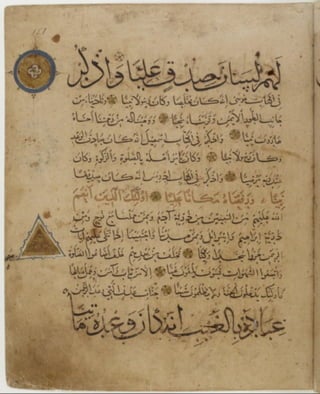 لهم لسان صدق عليا واذكر
في الكتاب موسى انه كان مخلصا وكان رسولا نبيا وناديناه من
جانب الطور الايمن وقربناه نجيا ووهبنا له من رحمتنا اخاه
هارون نبيا واذكر في الكتاب اسمعيل انه كان صادق الوعد
وكان رسولا نبيا وكان يأمر اهله بالصلوة والزكوة وكان
عند ربه مرضيا واذكر في الكتاب ادريس انه كان صديقا
نبيا ورفعناه مكانا عليا اولئك الذين انعم
الله عليهم من النبيين من ذرية آدم وممن حملنا مع نوح ومن
ذرية ابراهيم واسرائيل وممن هدينا واجتبينا اذا تتلى عليهم
آيات الرحمن خروا سجدا وبكيا فخلف من بعدهم خلف اضاعوا الصلوة
واتبعوا الشهوات فسوف يلقون غيا الا من تاب وآمن وعمل صالحا
فاولئك يدخلون الجنة ولا يظلمون شيئا جنات عدن التي وعد الرحمن
عباده بالغيب انه كان وعده مأتيا